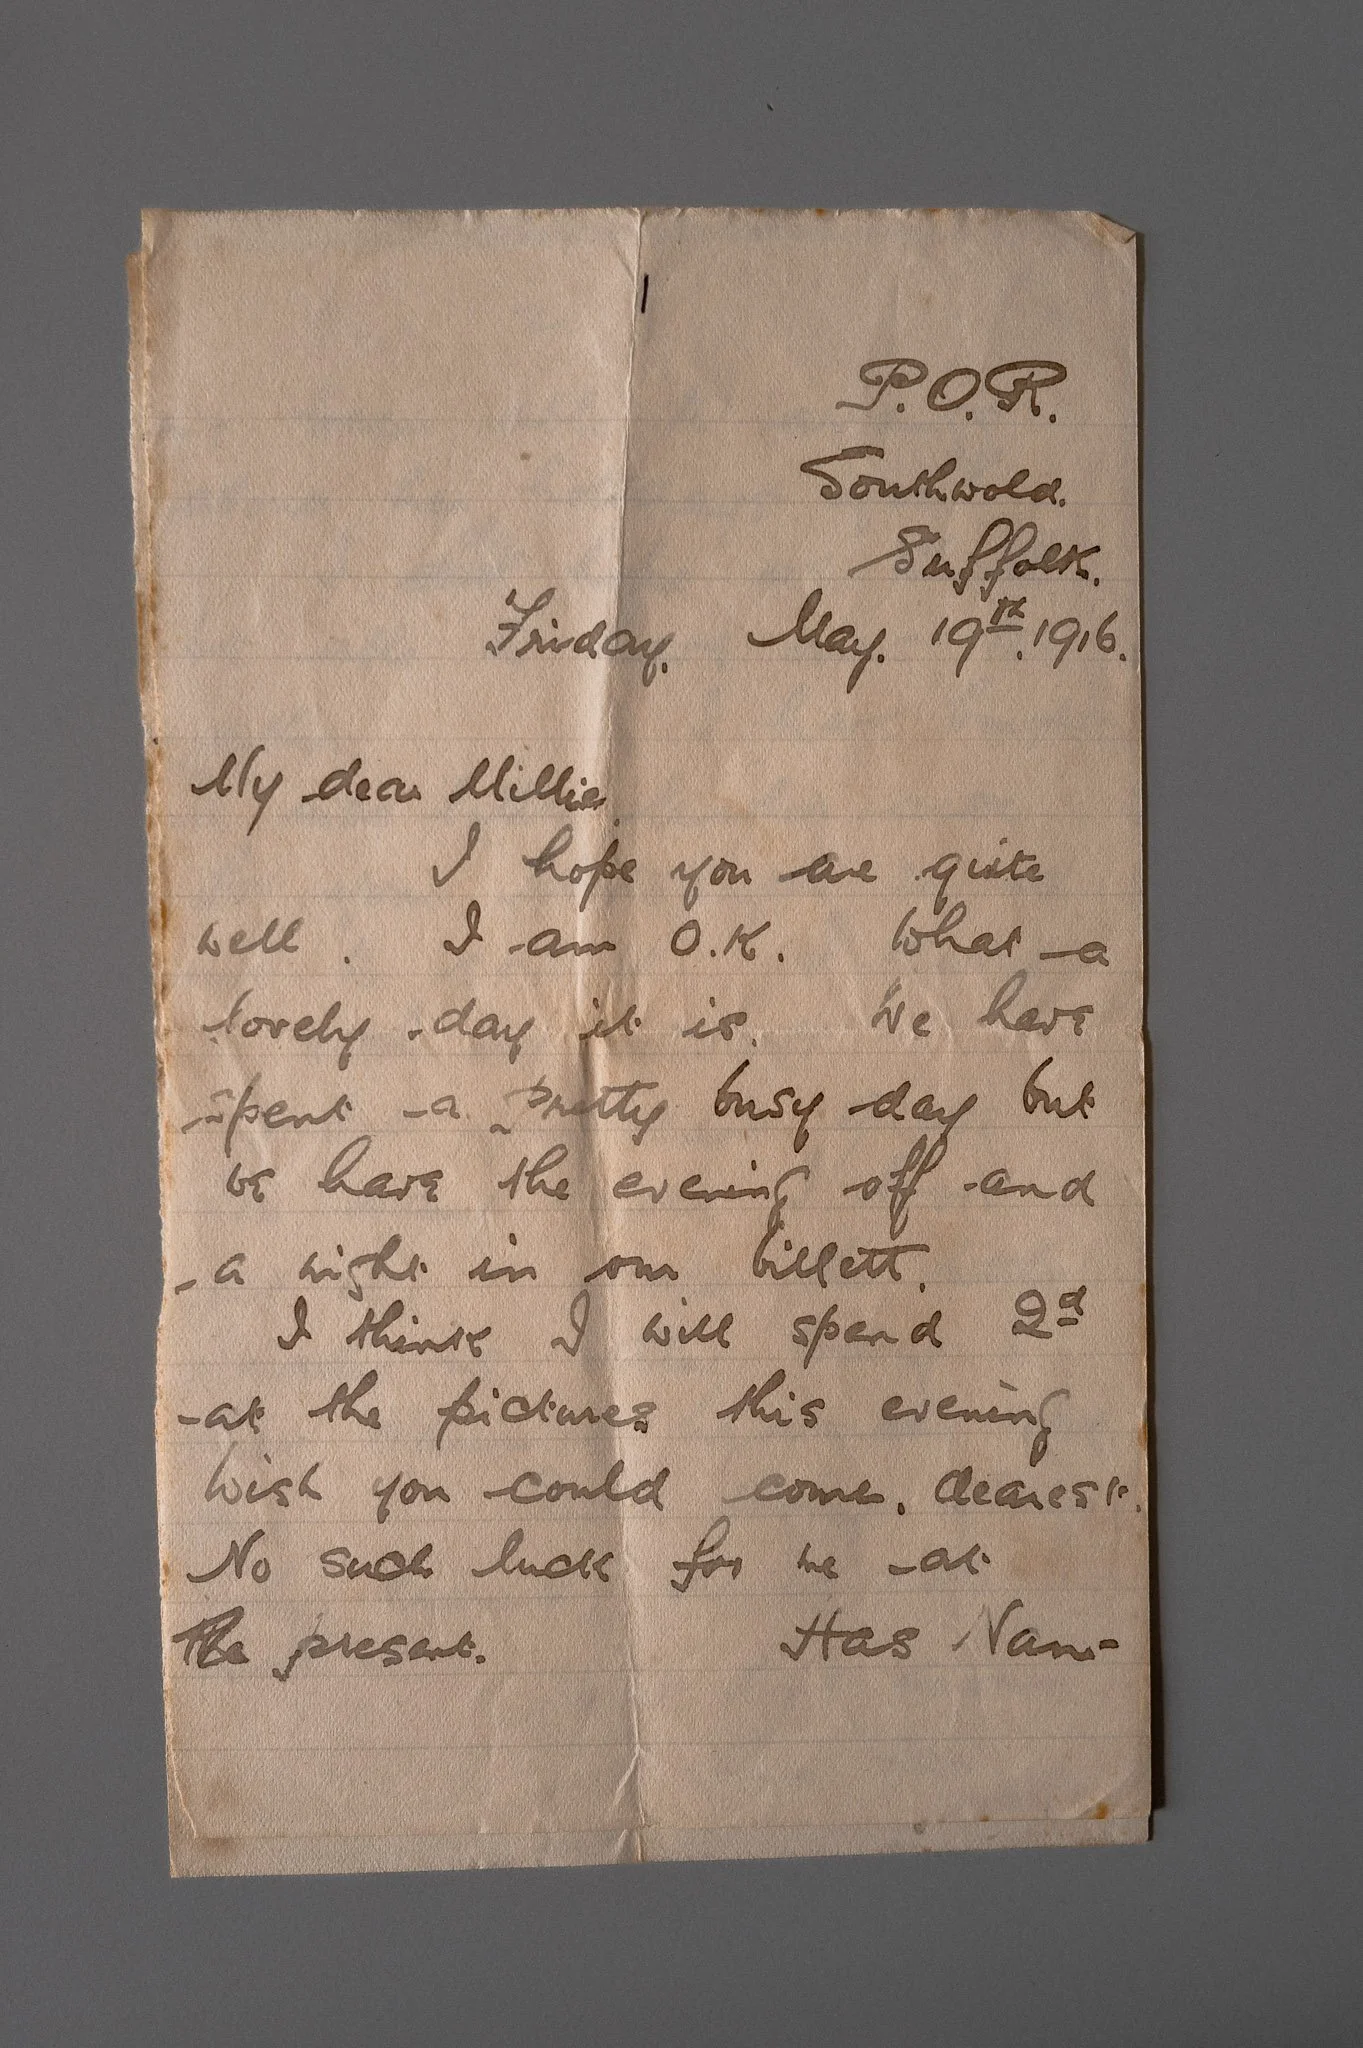 P.O.R.
Southwold.
Suffolk.
Friday. May. 19th. 1916.
My dear Millie,
I hope you are quite
well. I am O.K. What a
lovely day it is. We have
spent a pretty busy day but
we have the evening off and
a night in our billett.
I think I will spend 2d
at the pictures this evening
Wish you could come, dearest.
No such luck for me at
the present. Has Nan-